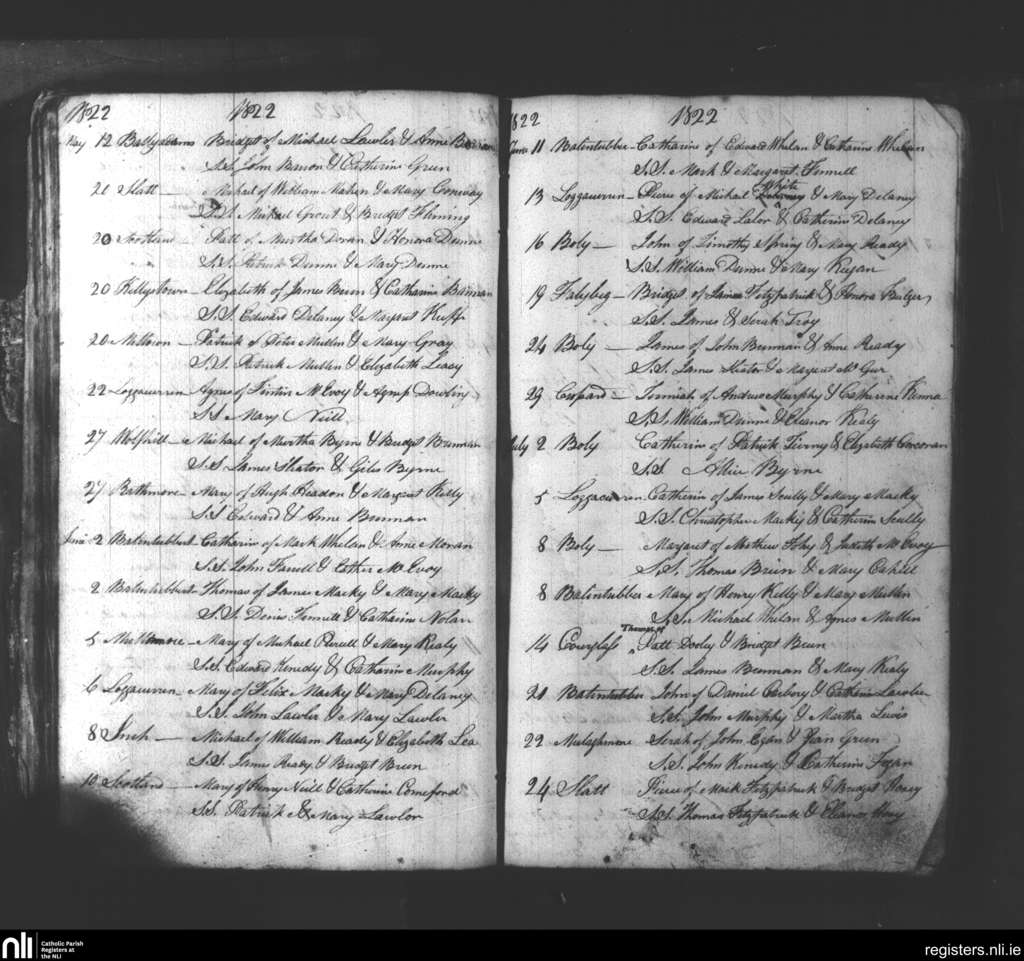 1822 1822
May 12 Ballyadams Bridget of Michael Lawler & Anne Barron
S.S. John Barron & Catherine Green
21 Slatt Michael of William Market & Mary Conway
S.S. Michael Grout & Bridget Fleming
20 Scotland Patt of Murtha Doran & Honora Dunne
S.S. Patrick Dunne & Mary Dunne
20 Kellystown Elizabeth of James Breen & Catharine Bannan
S.S. Edward Delaney & Margaret
20 Milltown Patrick of Peter Mullin & Mary Gray
S.S. Patrick Mullin & Elizabeth Leasy
22 Loggacurren Agnes of Fintin McEvoy & Agness Dowling
S.S. Mary Neill
27 Wolfhill Michael of Murtha Byrne & Bridget Brennan
S.S. James Slator & Giles Byrne
27 Rathmore Mary of Hugh Headon & Margaret Kelly
S.S. Edward & Anne Brennan
June 2 Batintubbert Catharine of Mark Whelan & Anne Moran
S.S. John Farrell & Esther McEvoy
2 Batintubbert Thomas of James Macky & Mary Macky
S.S. Denis Fennell & Catharine Nolan
5 Mary of Michael Purcell & Mary Realy
S.S. Edward Kenedy & Catharine Murphy
6 Loggacurren Mary of Felix Macky & Mary Delaney
S.S. John Lawler & Mary Lawler
8 Inch Michael of William Ready & Elizabeth Lea
S.S. James Ready & Bridget Breen
10 Scotland Mary of Henry Neill & Catherine Comeford
S.S. Patrick & Mary Lawlor
1822 1822
June 11 Batintubber Catharine of Edward Whelan & Catharine Whelan
S.S. Mark & Margaret Fennell
13 Loggacurren Pierce of Michael White & Mary Delany
S.S. Edward Lalor & Catherine Delaney
16 Boly John of Timothy Spring & Mary Ready
S.S. William Dunne & Mary Regan
19 Falybeg Bridget of James Fitzpatrick & Honora Bulger
S.S. James & Serah Troy
24 Boly James of John Brennan & Anne Ready
S.S. James Slator & Margaret
29 Cupard Jeremiah of Andrew Murphy & Catherine Kenna
S.S. William Dunne & Eleanor Kealy
July 2 Boly Catherine of Patrick Tierny & Elizabeth Corcoran
S.S. Allice Byrne
5 Loggacurren Catherin of James Scully & Mary Macky
S.S. Christopher Macky & Catherin Scully
8 Boly Margaret of Mathew Fohy & Judith McEvoy
S.S. Thomas Breen & Mary Cahill
8 Batintubber Mary of Henry Kelly & Mary Mullin
S.S. Michael Whelan & Agnes Mullin
14 Thomas of Patt Dooly & Bridget Breen
S.S. James Brennan & Mary Kealy
21 Batintubber John of Daniel Carbery & Catherin Lawler
S.S. John Murphy & Martha Lewis
22 Mulaghmore Serah of John Egan & Jean Green
S.S. John Kenedy & Catharine Fegan
24 Slatt Pierce of Mark Fitzpatrick & Bridget
S.S. Thomas Fitzpatrick & Eleanor
nli Catholic Parish
Registers at
the NLI
registers.nli.ie